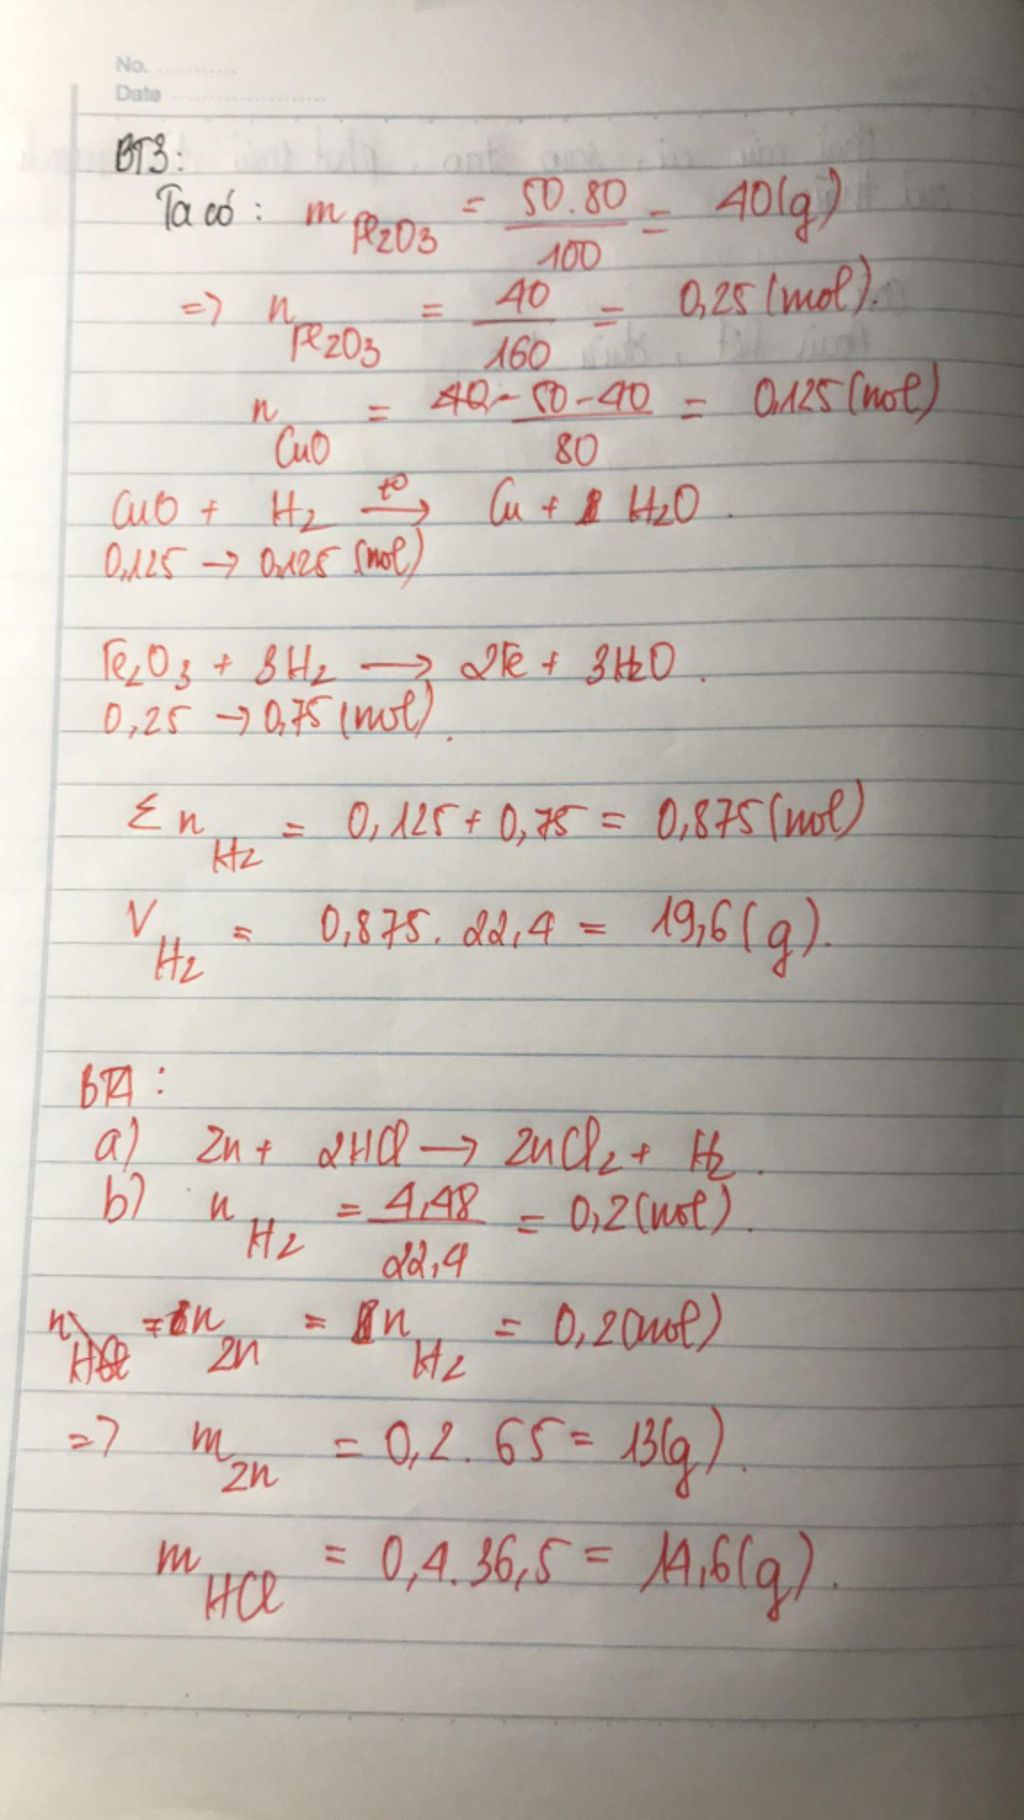 No. ............
Date ........................
BT3:
Ta có: m Fe2O3 = 50.80 / 100 = 40(g)
=> n Fe2O3 = 40 / 160 = 0,25 (mol).
n CuO = 50-40 / 80 = 0,125 (mol)
CuO + H2 t° → Cu + H2O.
0,125 → 0,125 (mol)
Fe2O3 + 3H2 → 2Fe + 3H2O.
0,25 → 0,75 (mol).
Σ n H2 = 0,125 + 0,75 = 0,875 (mol)
V H2 = 0,875. 22,4 = 19,6 (g).
BT4:
a) Zn + 2HCl → ZnCl2 + H2.
b) n H2 = 4,48 / 22,4 = 0,2 (mol).
n Zn = n H2 = 0,2 (mol)
=> m Zn = 0,2. 65 = 13(g).
m HCl = 0,4. 36,5 = 14,6 (g).